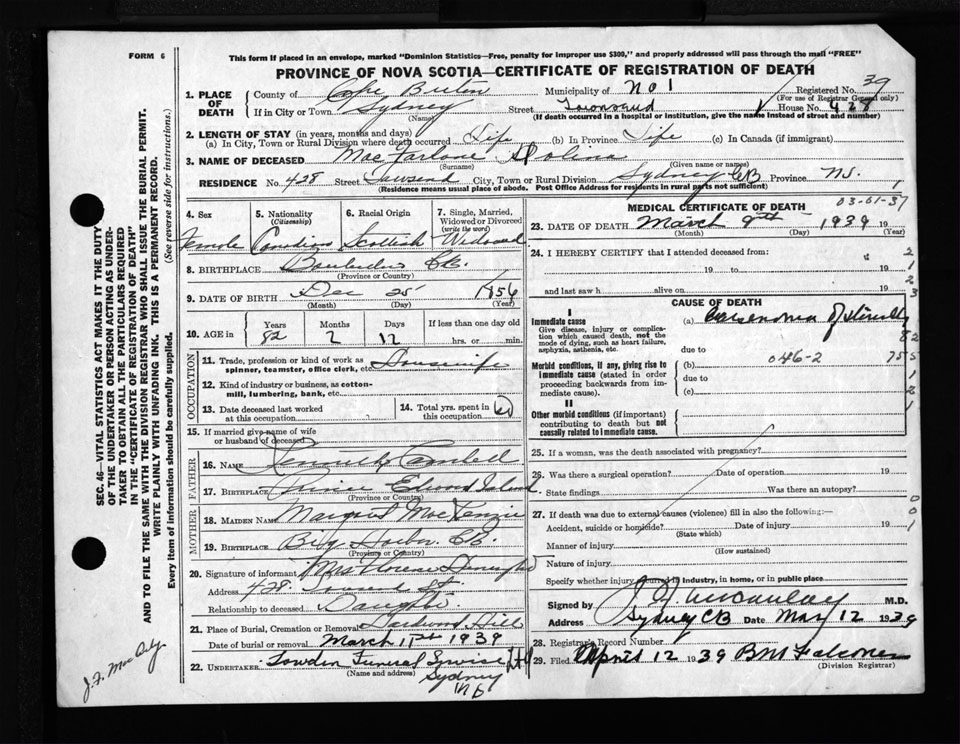 FORM 6
This form if placed in an envelope, marked "Dominion Statistics—Free, penalty for improper use $300," and properly addressed will pass through the mail "FREE"
PROVINCE OF NOVA SCOTIA—CERTIFICATE OF REGISTRATION OF DEATH
39
1. PLACE OF DEATH County of Cape Breton Municipality of No 1 Registered No.
(For use of Registrar General only)
If in City or Town Sydney Street Townsend House No. 428
(Name) (If death occurred in a hospital or institution, give the name instead of street and number)
2. LENGTH OF STAY (in years, months and days)
(a) In City, Town or Rural Division where death occurred Life (b) In Province Life (c) In Canada (if immigrant)
3. NAME OF DECEASED MacFarlane
(Surname) (Given name or names)
RESIDENCE No. 428 Street Townsend City, Town or Rural Division Sydney CB Province NS.
(Residence means usual place of abode. Post Office Address for residents in rural parts not sufficient)
4. Sex 5. Nationality (Citizenship) 6. Racial Origin 7. Single, Married, Widowed or Divorced (write the word)
Female Canadian Scottish Widowed
8. BIRTHPLACE CB.
(Province or Country)
9. DATE OF BIRTH Dec 25 1856
(Month) (Day) (Year)
10. AGE in Years Months Days If less than one day old
82 2 12 hrs. or min.
OCCUPATION
11. Trade, profession or kind of work as spinner, teamster, office clerk, etc. Housewife
12. Kind of industry or business, as cotton-mill, lumbering, bank, etc.
13. Date deceased last worked at this occupation
14. Total yrs. spent in this occupation 60
15. If married give name of wife or husband of deceased
FATHER
16. NAME
17. BIRTHPLACE Prince Edward Island
(Province or Country)
MOTHER
18. MAIDEN NAME Margaret MacKenzie
19. BIRTHPLACE Big Harbor CB.
(Province or Country)
20. Signature of informant Mrs Florence
Address 428 Townsend St
Relationship to deceased Daughter
21. Place of Burial, Cremation or Removal Hardwood Hill
Date of burial or removal March 11th 1939
22. UNDERTAKER Lowden Funeral Service Ltd
(Name and address) Sydney
NS
MEDICAL CERTIFICATE OF DEATH
03-01-37
23. DATE OF DEATH March 9th 1939
(Month) (Day) (Year)
24. I HEREBY CERTIFY that I attended deceased from:
19 to 19
and last saw h alive on 19
CAUSE OF DEATH
I
Immediate cause (a) Carcinoma
Give disease, injury or complication which caused death, not the mode of dying, such as heart failure, asphyxia, asthenia, etc.
due to
046-2
Morbid conditions, if any, giving rise to immediate cause (stated in order proceeding backwards from immediate cause).
(b)
due to
(c)
II
Other morbid conditions (if important) contributing to death but not causally related to immediate cause.
25. If a woman, was the death associated with pregnancy?
26. Was there a surgical operation? Date of operation 19
State findings Was there an autopsy?
27. If death was due to external causes (violence) fill in also the following:—
Accident, suicide or homicide? Date of injury 19
(State which)
Manner of injury
(How sustained)
Nature of injury
Specify whether injury occurred in industry, in home, or in public place
Signed by M.D.
Address Sydney CB Date May 12 1939
28. Registrar's Record Number
29. Filed April 12 1939 BM Falconer
(Division Registrar)
SEC. 46—VITAL STATISTICS ACT MAKES IT THE DUTY
OF THE UNDERTAKER OR PERSON ACTING AS UNDER-
TAKER TO OBTAIN ALL THE PARTICULARS REQUIRED
IN THE "CERTIFICATE OF REGISTRATION OF DEATH"
AND TO FILE THE SAME WITH THE DIVISION REGISTRAR WHO SHALL ISSUE THE BURIAL PERMIT.
WRITE PLAINLY WITH UNFADING INK. THIS IS A PERMANENT RECORD.
Every item of information should be carefully supplied. (See reverse side for instructions.)